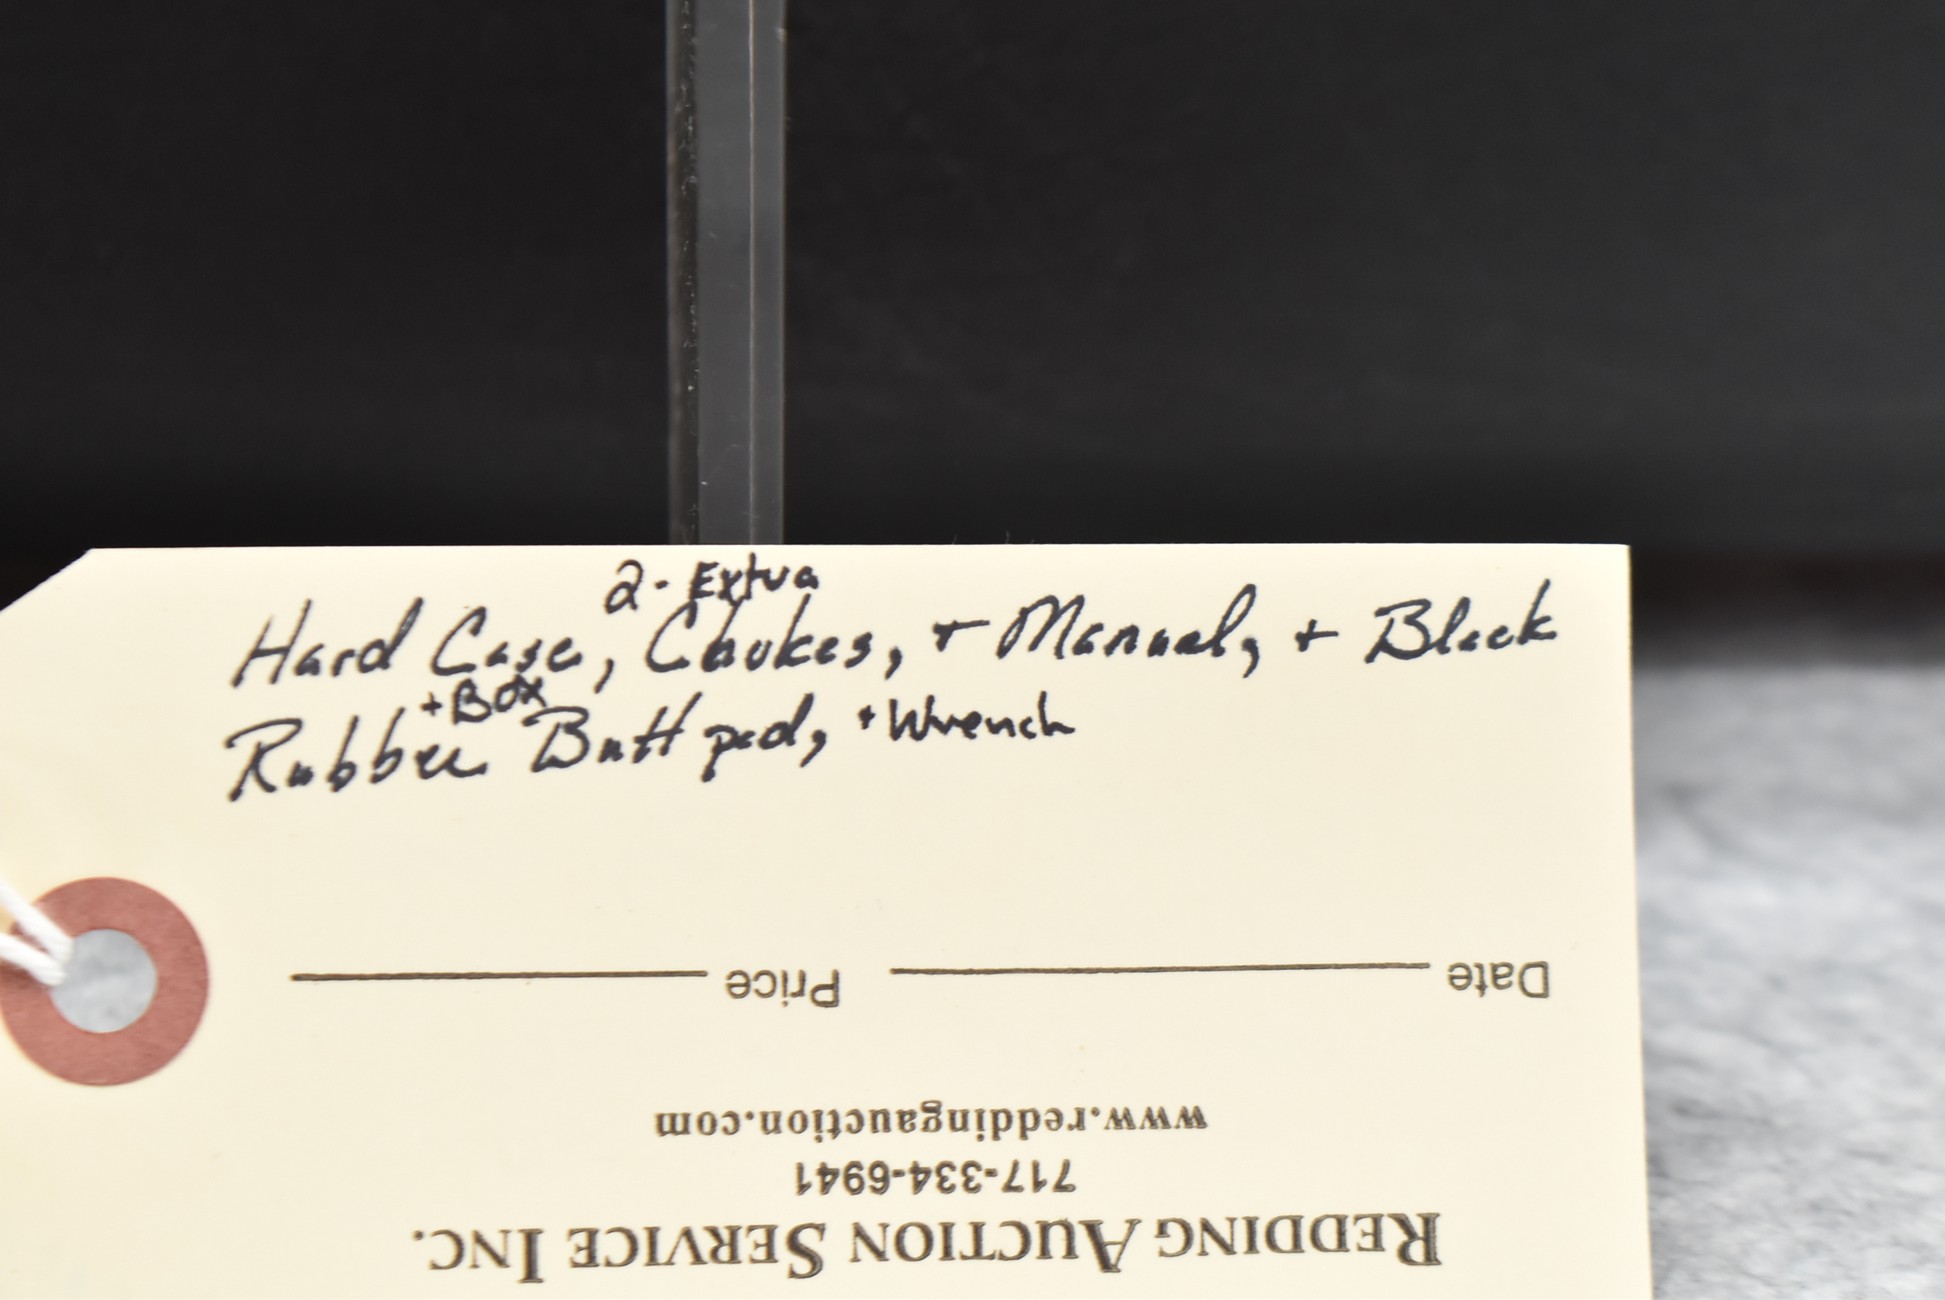 2-Extra
Hard Case, Chokes, + Manual, + Black
+ Box
Rubber Butt pad, + Wrench
Date Price
www.reddingauction.com
717-334-6941
REDDING AUCTION SERVICE INC.